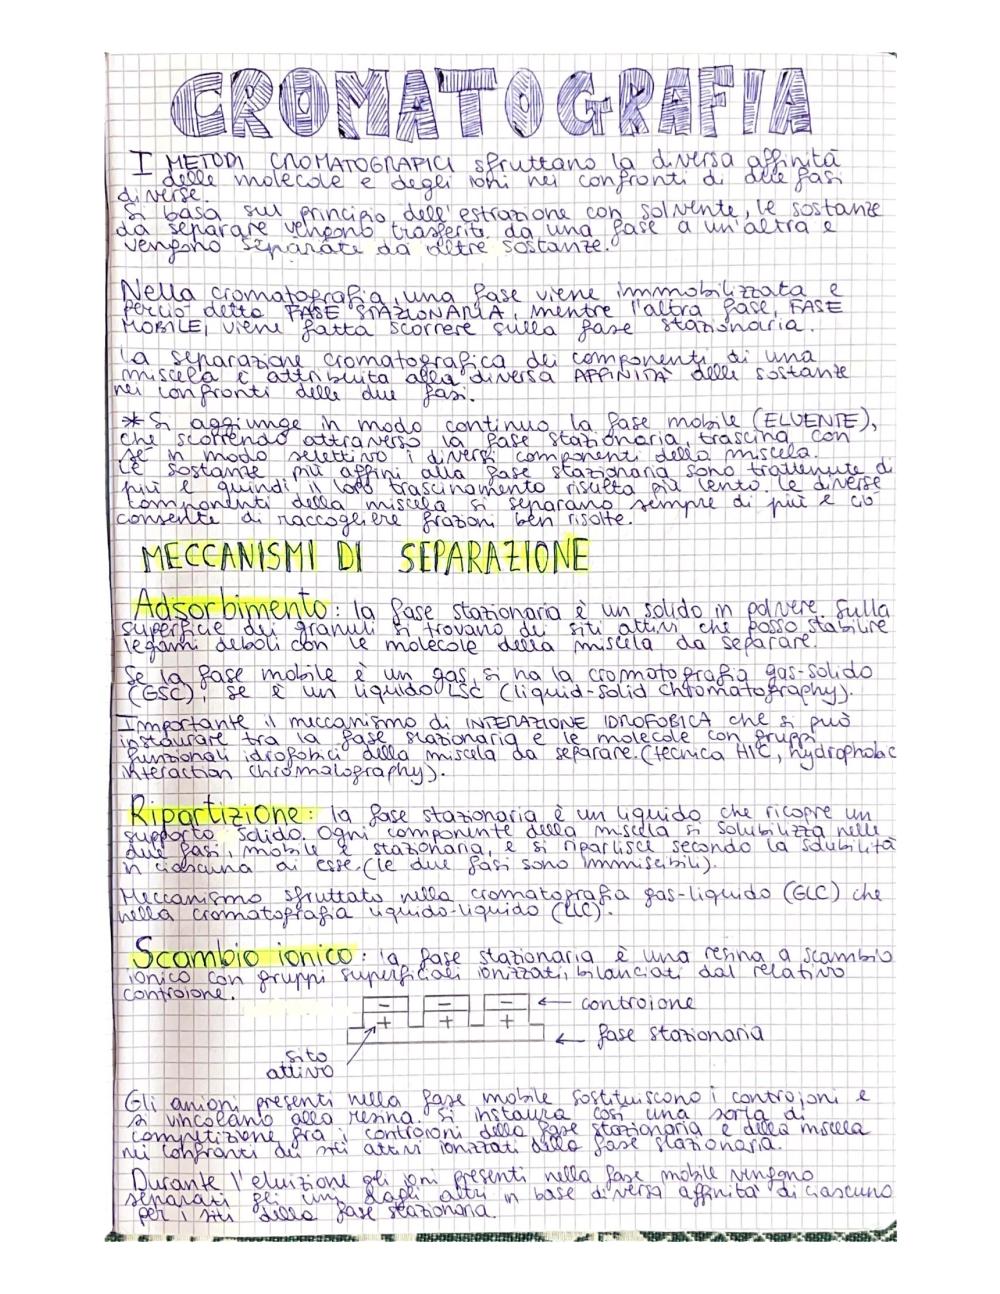 CROMATOGRAFIA
I METODI CROMATOGRAFICI sfruttano la diversa affinità
delle molecole e degli ioni nei confronti di due fasi
diverse.
Si basa sul principio dell'estrazione con solvente, le sostanze
da separare vengono trasferite da una fase a un'altra e
vengono separate da altre sostanze.
Nella cromatografia, una fase viene immobilizzata e
perciò detta FASE STAZIONARIA, mentre l'altra fase, FASE
MOBILE, viene fatta scorrere sulla fase stazionaria.
La separazione cromatografica dei componenti di una
miscela è attribuita alla diversa AFFINITÀ delle sostanze
nei confronti delle due fasi.
*Si aggiunge in modo continuo la fase mobile (ELUENTE),
che scorrendo attraverso la fase stazionaria, trascina con
sé in modo selettivo i diversi componenti della miscela.
Le sostanze più affini alla fase stazionaria sono trattenute di
più e quindi il loro trascinamento risulta più lento. Le diverse
componenti della miscela si separano sempre di più e ciò
consente di raccogliere frazoni ben risolte.
MECCANISMI DI SEPARAZIONE
Adsorbimento: la fase stazionaria è un solido in polvere. Sulla
superficie dei granuli si trovano dei siti attivi che posso stabilire
legami deboli con le molecole della miscela da separare.
Se la fase mobile è un gas, si ha la cromatografia gas-solido
(GSC), se è un liquido LSC (liquid-solid chromatography).
Importante il meccanismo di INTERAZIONE IDROFOBICA che si può
instaurare tra la fase stazionaria e le molecole con gruppi
funzionali idrofobici della miscela da separare. (tecnica HIC, hydrophobic
interaction chromatography).
Ripartizione: la fase stazionaria è un liquido che ricopre un
supporto solido. Ogni componente della miscela si solubilizza nelle
due fasi, mobile e stazionaria, e si ripartisce secondo la solubilità
in ciascuna di esse. (le due fasi sono immiscibili).
Meccanismo sfruttato nella cromatografia gas-liquido (GLC) che
nella cromatografia liquido-liquido (LLC).
Scambio ionico: la fase stazionaria è una resina a scambio
ionico con gruppi superficiali ionizzati, bilanciati dal relativo
controione.
- - - ← controione
+ + + ← fase stazionaria
sito
attivo
Gli anioni presenti nella fase mobile sostituiscono i controioni e
si vincolano alla resina. Si instaura così una sorta di
competizione fra i controioni della fase stazionaria e della miscela
nei confronti dei siti attivi ionizzati della fase stazionaria.
Durante l'eluizione gli ioni presenti nella fase mobile vengono
separati gli uni dagli altri in base diversa affinità di ciascuno
per i siti della fase stazionaria.